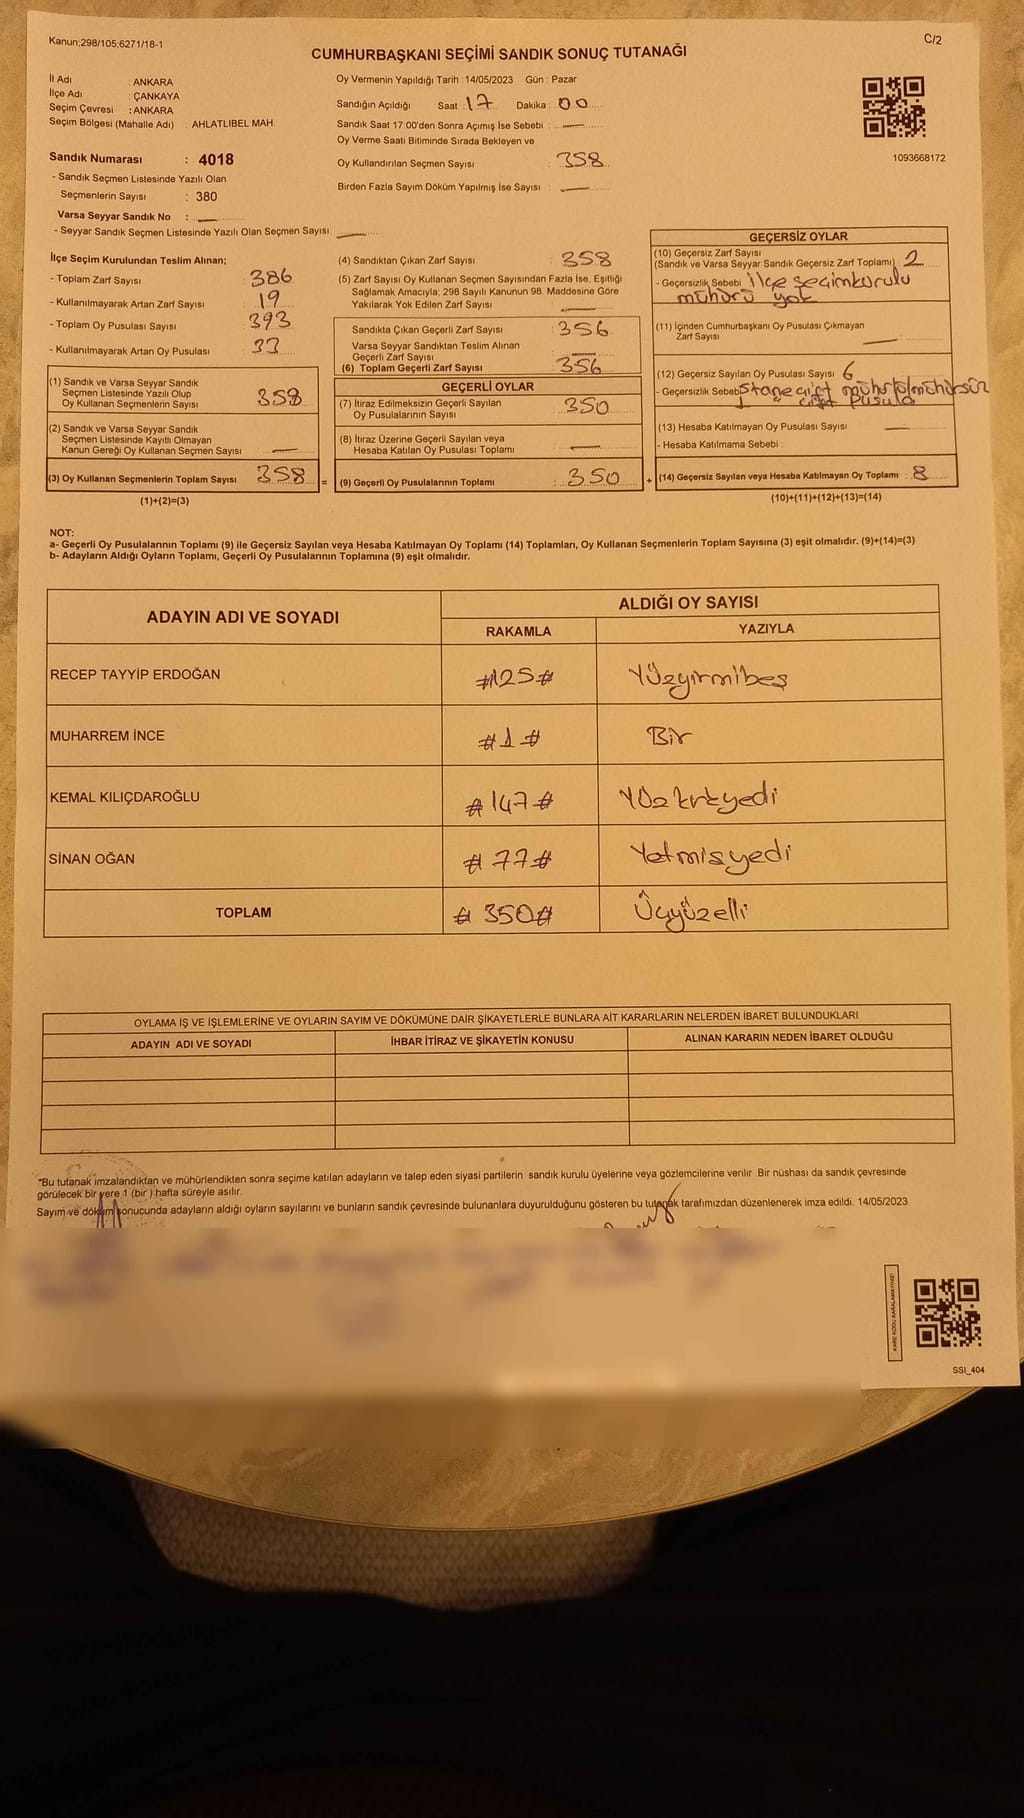 Kanun;298/105;6271/18-1
C/2
CUMHURBAŞKANI SEÇİMİ SANDIK SONUÇ TUTANAĞI
İl Adı : ANKARA
İlçe Adı : ÇANKAYA
Seçim Çevresi : ANKARA
Seçim Bölgesi (Mahalle Adı) : AHLATLIBEL MAH.
Sandık Numarası : 4018
- Sandık Seçmen Listesinde Yazılı Olan
Seçmenlerin Sayısı : 380
Varsa Seyyar Sandık No :
- Seyyar Sandık Seçmen Listesinde Yazılı Olan Seçmen Sayısı:
Oy Vermenin Yapıldığı Tarih : 14/05/2023 Gün : Pazar
Sandığın Açıldığı Saat : 17 Dakika : 00
Sandık Saat 17:00'den Sonra Açımış İse Sebebi :
Oy Verme Saati Bitiminde Sırada Bekleyen ve
Oy Kullandırılan Seçmen Sayısı : 358
Birden Fazla Sayım Döküm Yapılmış İse Sayısı :
1093668172
İlçe Seçim Kurulundan Teslim Alınan;
- Toplam Zarf Sayısı 386
- Kullanılmayarak Artan Zarf Sayısı 19
- Toplam Oy Pusulası Sayısı 393
- Kullanılmayarak Artan Oy Pusulası 33
(1) Sandık ve Varsa Seyyar Sandık
Seçmen Listesinde Yazılı Olup
Oy Kullanan Seçmenlerin Sayısı 358
(2) Sandık ve Varsa Seyyar Sandık
Seçmen Listesinde Kayıtlı Olmayan
Kanun Gereği Oy Kullanan Seçmen Sayısı
(3) Oy Kullanan Seçmenlerin Toplam Sayısı 358 =
(1)+(2)=(3)
(4) Sandıktan Çıkan Zarf Sayısı : 358
(5) Zarf Sayısı Oy Kullanan Seçmen Sayısından Fazla İse, Eşitliği
Sağlamak Amacıyla; 298 Sayılı Kanunun 98. Maddesine Göre
Yakılarak Yok Edilen Zarf Sayısı
Sandıkta Çıkan Geçerli Zarf Sayısı : 356
Varsa Seyyar Sandıktan Teslim Alınan
Geçerli Zarf Sayısı
(6) Toplam Geçerli Zarf Sayısı : 356
GEÇERLİ OYLAR
(7) İtiraz Edilmeksizin Geçerli Sayılan
Oy Pusulalarının Sayısı : 350
(8) İtiraz Üzerine Geçerli Sayılan veya
Hesaba Katılan Oy Pusulası Toplamı
(9) Geçerli Oy Pusulalarının Toplamı : 350 +
GEÇERSİZ OYLAR
(10) Geçersiz Zarf Sayısı
(Sandık ve Varsa Seyyar Sandık Geçersiz Zarf Toplamı) 2
- Geçersizlik Sebebi İlçe seçim kurulu
mühürü yok
(11) İçinden Cumhurbaşkanı Oy Pusulası Çıkmayan
Zarf Sayısı
(12) Geçersiz Sayılan Oy Pusulası Sayısı 6
- Geçersizlik Sebebi
(13) Hesaba Katılmayan Oy Pusulası Sayısı
- Hesaba Katılmama Sebebi :
(14) Geçersiz Sayılan veya Hesaba Katılmayan Oy Toplamı : 8
(10)+(11)+(12)+(13)=(14)
NOT:
a- Geçerli Oy Pusulalarının Toplamı (9) ile Geçersiz Sayılan veya Hesaba Katılmayan Oy Toplamı (14) Toplamları, Oy Kullanan Seçmenlerin Toplam Sayısına (3) eşit olmalıdır. (9)+(14)=(3)
b- Adayların Aldığı Oyların Toplamı, Geçerli Oy Pusulalarının Toplamına (9) eşit olmalıdır.
ADAYIN ADI VE SOYADI
ALDIĞI OY SAYISI
RAKAMLA YAZIYLA
RECEP TAYYİP ERDOĞAN #125# Yüzyirmibeş
MUHARREM İNCE #1# Bir
KEMAL KILIÇDAROĞLU #147# Yüzkırkyedi
SİNAN OĞAN #77# Yetmişyedi
TOPLAM #350# Üçyüzelli
OYLAMA İŞ VE İŞLEMLERİNE VE OYLARIN SAYIM VE DÖKÜMÜNE DAİR ŞİKAYETLERLE BUNLARA AİT KARARLARIN NELERDEN İBARET BULUNDUKLARI
ADAYIN ADI VE SOYADI İHBAR İTİRAZ VE ŞİKAYETİN KONUSU ALINAN KARARIN NEDEN İBARET OLDUĞU
*Bu tutanak imzalandıktan ve mühürlendikten sonra seçime katılan adayların ve talep eden siyasi partilerin sandık kurulu üyelerine veya gözlemcilerine verilir. Bir nüshası da sandık çevresinde
görülecek bir yere 1 (bir) hafta süreyle asılır.
Sayım ve döküm sonucunda adayların aldığı oyların sayılarını ve bunların sandık çevresinde bulunanlara duyurulduğunu gösteren bu tutanak tarafımızdan düzenlenerek imza edildi. 14/05/2023
KARE KODU KARALAMAYINIZ!
SSI_404